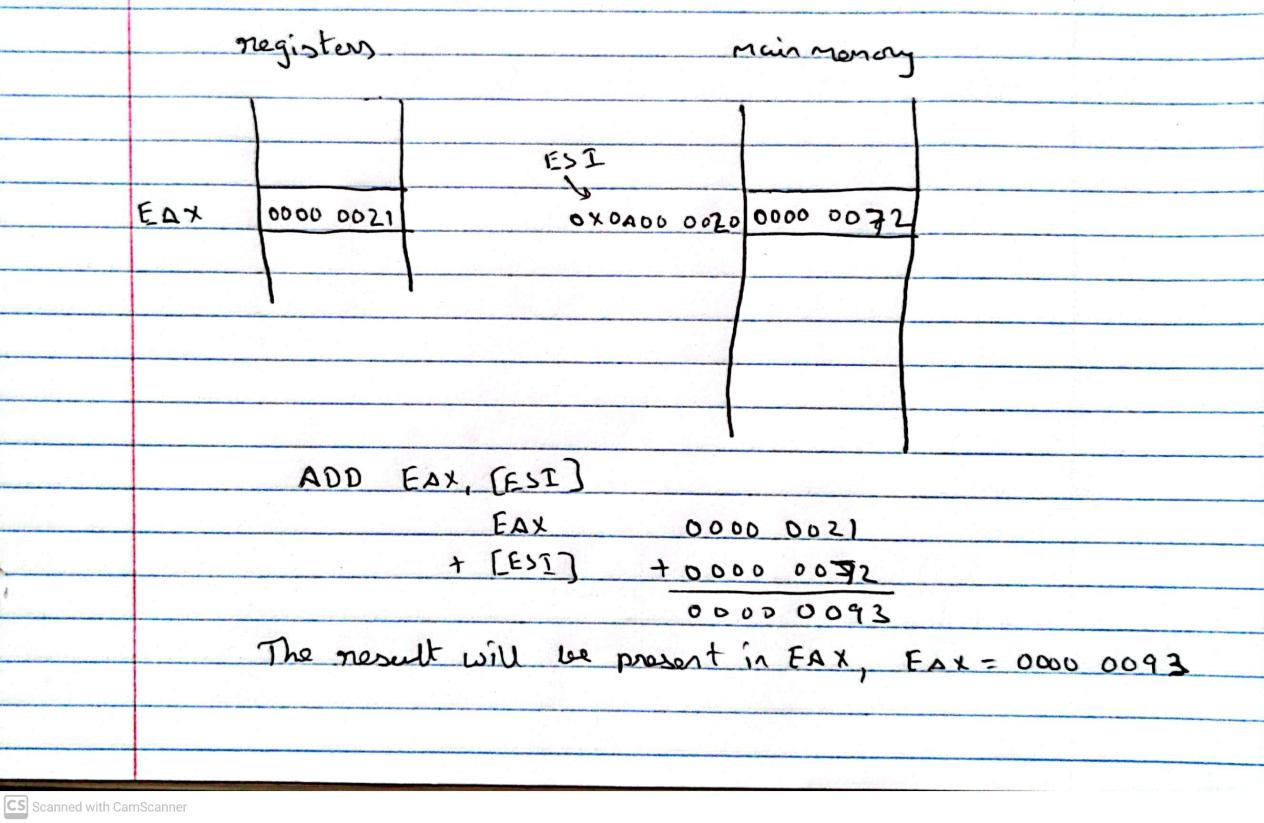 registers main memory
ESI
EAX 0000 0021 0X0A00 0020 0000 0072
ADD EAX, [ESI]
EAX 0000 0021
+ [ESI] + 0000 0072
0000 0093
The result will be present in EAX, EAX = 0000 0093
CS Scanned with CamScanner